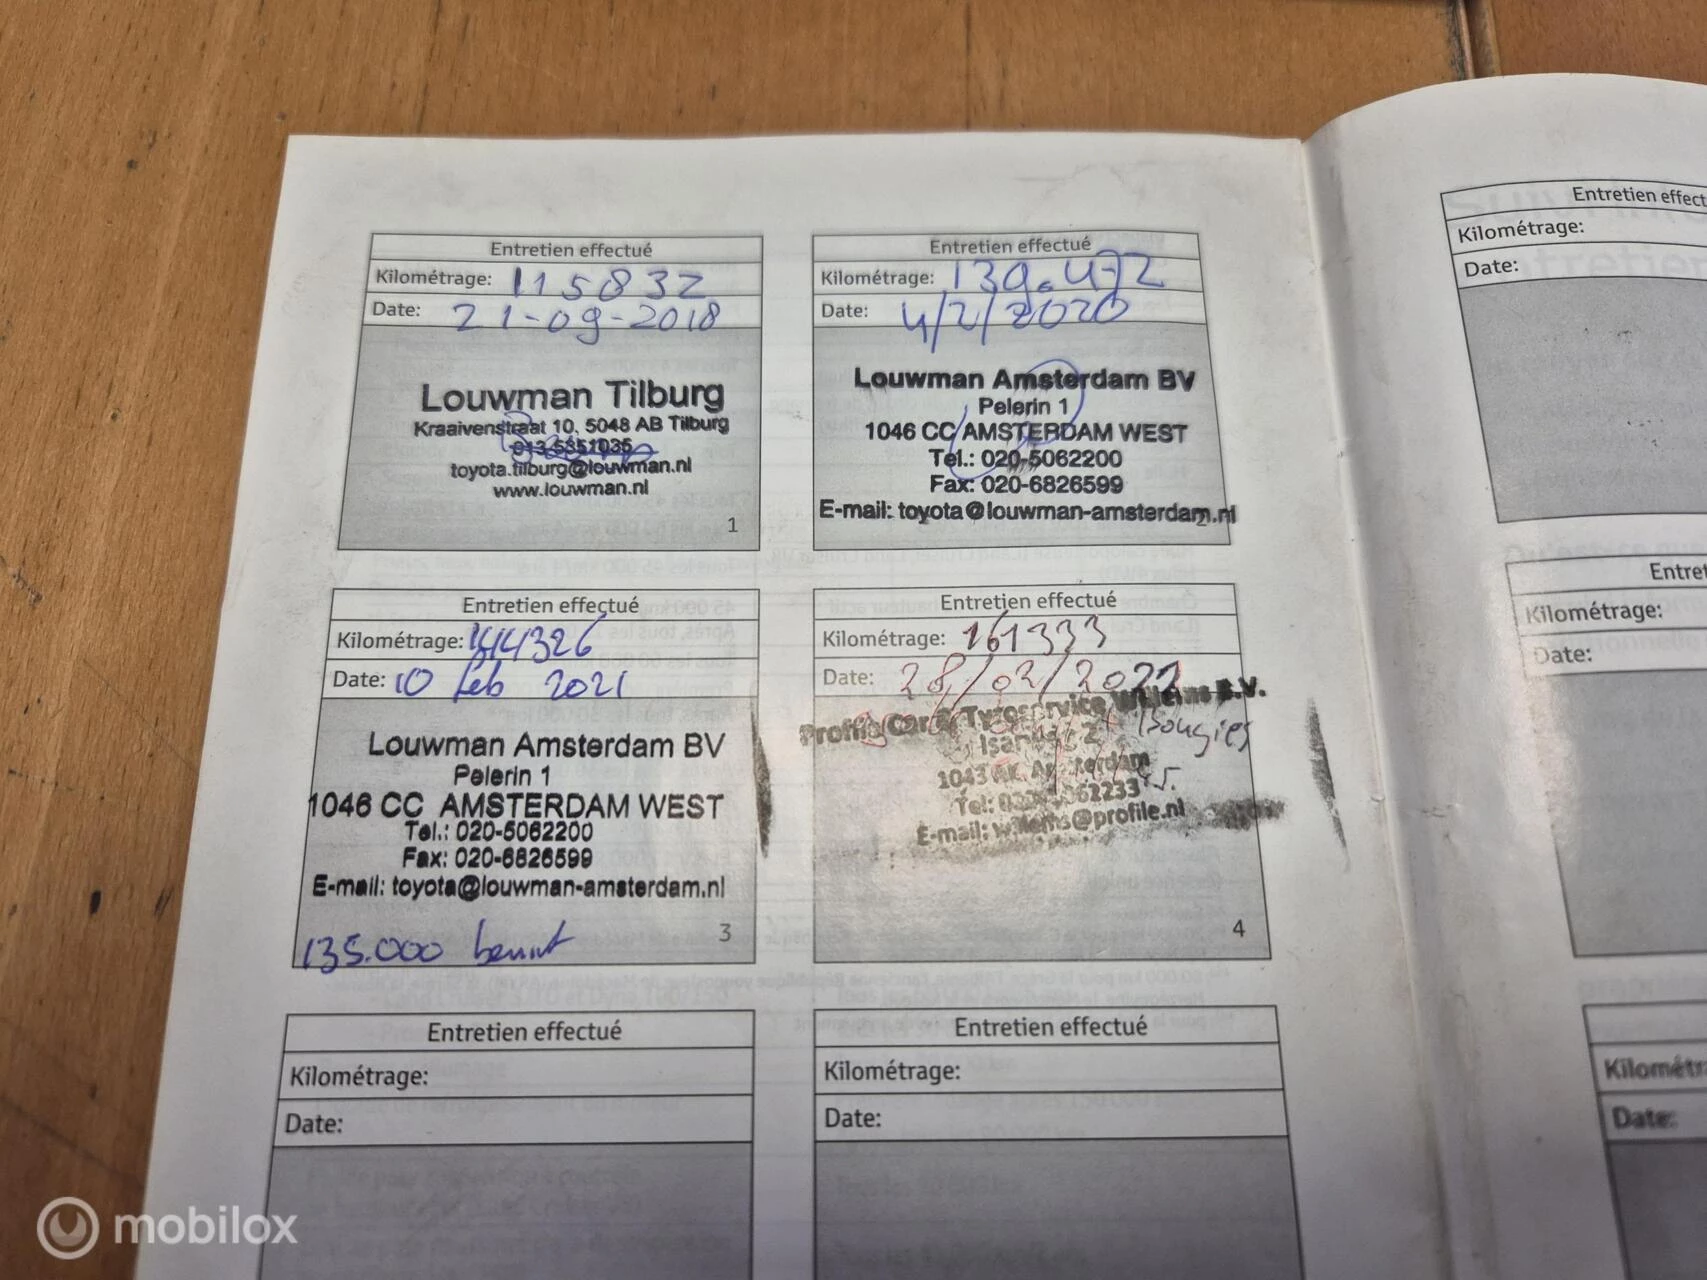 Entretien effectué
Kilométrage: 115832
Date: 21-09-2018
Louwman Tilburg
Kraaivenstraat 10, 5048 AB Tilburg
013-5351035
toyota.tilburg@louwman.nl
www.louwman.nl
1
Entretien effectué
Kilométrage: 139.472
Date: 4/2/2020
Louwman Amsterdam BV
Pelerin 1
1046 CC AMSTERDAM WEST
Tel.: 020-5062200
Fax: 020-6826599
E-mail: toyota@louwman-amsterdam.nl
2
Entretien effectué
Kilométrage: 144326
Date: 10 feb 2021
Louwman Amsterdam BV
Pelerin 1
1046 CC AMSTERDAM WEST
Tel.: 020-5062200
Fax: 020-6826599
E-mail: toyota@louwman-amsterdam.nl
135.000 beurt
3
Entretien effectué
Kilométrage: 161333
Date: 28/02/2022
Profile Car & Tyreservice Willems B.V.
Bougies
1043 AK Amsterdam
E-mail: willems@profile.nl
4
Entretien effectué
Kilométrage:
Date:
Entretien effectué
Kilométrage:
Date:
Entretien effect
Kilométrage:
Date:
Entret
Kilométrage:
Date:
Kilométra
Date:
mobilox